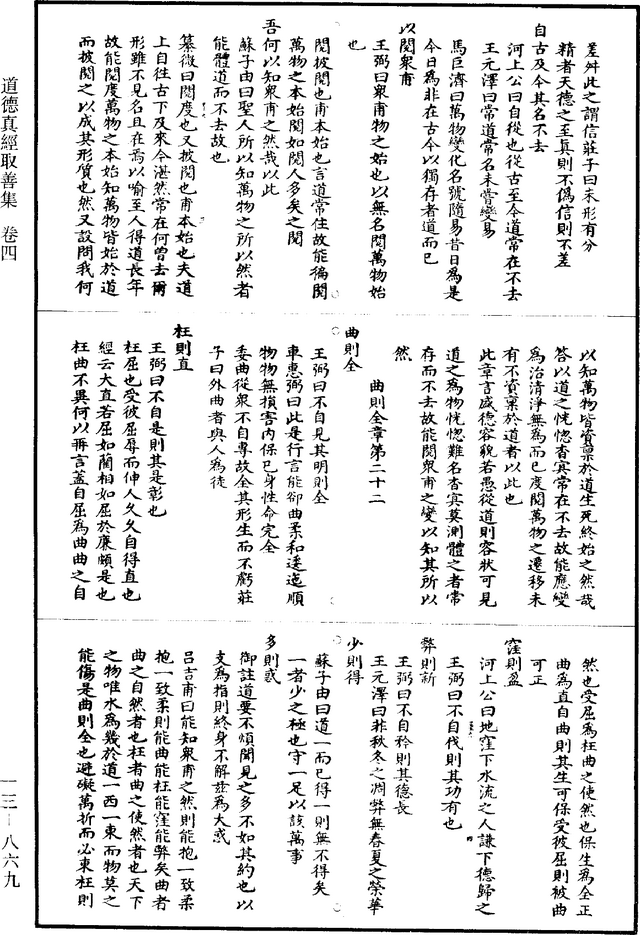 差舛此之謂信莊子曰未形有分
精者天德之至真則不偽信則不差
自古及今其名不去
河上公曰自從也從古至今道常在不去
王元澤曰常道常名未嘗變易
馬巨濟曰萬物變化名號隨易昔日為是
今日為非在古今以獨存者道而已
以閱衆甫
王弼曰衆甫物之始也以無名閱萬物始
也
閱披閱也甫本始也言道常住故能徧閱
萬物之本始閱如閱人多矣之閱
吾何以知衆甫之然哉以此
蘇子由曰聖人所以知萬物之所以然者
能體道而不去故也
纂微曰閱度也又披閱也甫本始也夫道
上自往古下及來今湛然常在何曾去爾
形雖不見名且在焉以喻至人得道長年
故能閱度萬物之本始知萬物皆始於道
而披閱之以成其形質也然又設問我何
以知萬物皆資禀於道生死終始之然哉
答以道之恍惚杳冥常在不去故能應變
為治清淨無為而已度閱萬物之遷移未
有不資禀於道者以此也
此章言盛德容貌若愚從道則容狀可見
道之為物恍惚難名杳冥莫測體之者常
存而不去故能閱衆甫之變以知其所以
然
曲則全章第二十二
曲則全
王弼曰不自見其明則全
車惠弼曰此是行言能卻曲柔和逶迤順
物物無損害内保已身性命完全
委曲從衆不自專故全其形生而不虧莊
子曰外曲者與人為徒
枉則直
王弼曰不自是則其是彰也
枉屈也受彼屈辱而伸人久久自得直也
經云大直若屈如藺相如屈於廉頗是也
枉曲不異何以再言蓋自屈為曲曲之自
然也受屈為枉曲之使然也保生為全正
曲為直自曲則其生可保受彼屈則被曲
可正
窪則盈
河上公曰地窪下水流之人謙下德歸之
王弼曰不自伐則其功有也
弊則新
王弼曰不自矜則其德長
王元澤曰非秋冬之凋弊無春夏之榮華
少則得
蘇子由曰道一而已得一則無不得矣
一者少之極也守一足以該萬事
多則惑
御註道要不煩聞見之多不如其約也以
支為指則終身不解兹為大惑
呂吉甫曰能知衆甫之然則能抱一致柔
抱一致柔則能曲能枉能窪能弊矣曲者
曲之自然者也枉者曲之使然者也天下
之物唯水為幾於道一西一東而物莫之
能傷是曲則全也避礙萬折而必東枉則
道德真經取善集　卷四
一三－八六九